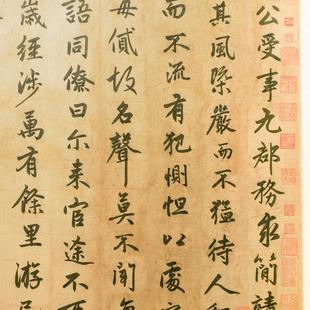 公受事九郡務求簡
其風槩嚴而不猛待人和
而不流有犯惻怛以處
毋貳故名聲莫不聞
語同僚曰尔来宦途不
歲經涉萬有餘里游